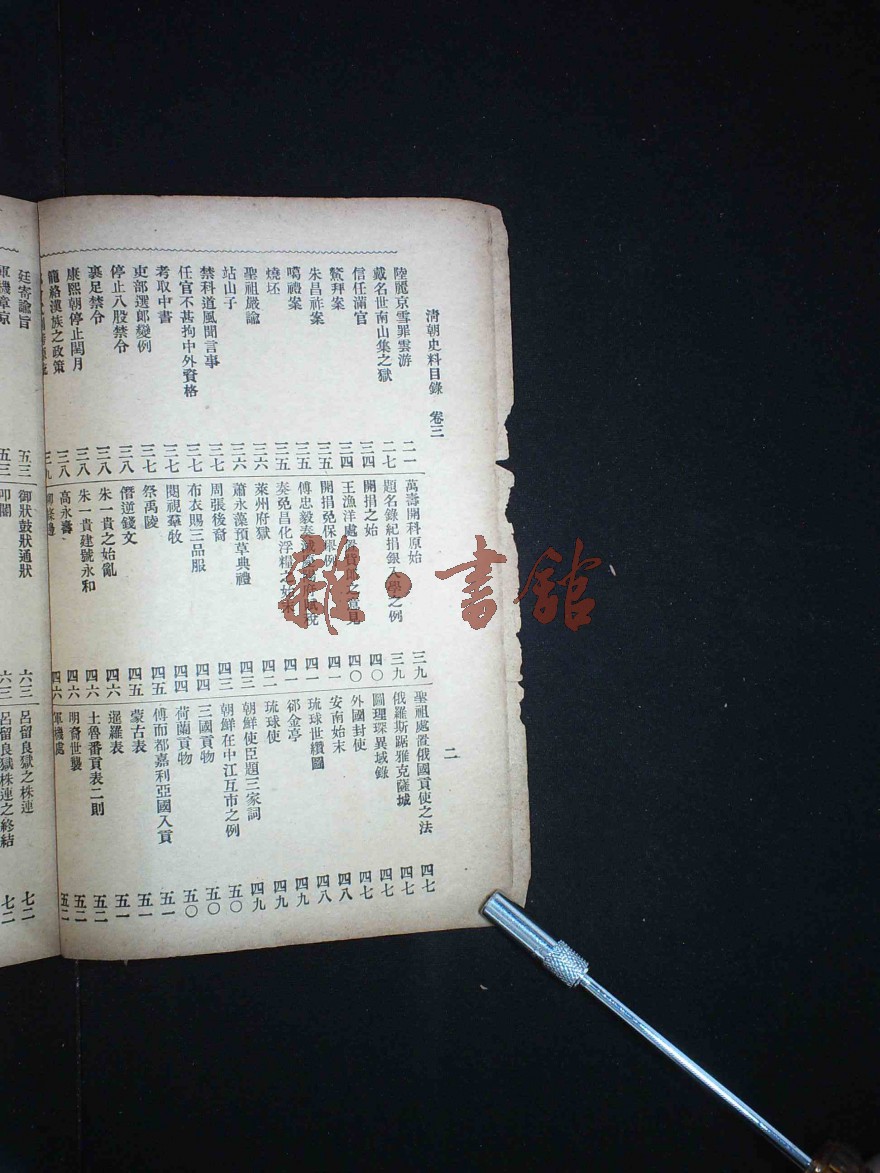 清朝史料目錄 卷三
二
陸麗京雪罪雲游 二一
戴名世南山集之獄 二七
信任滿官 三四
鰲拜案 三四
朱昌祚案 三五
噶禮案 三五
燒坯 三五
聖祖嚴諭 三六
站山子 三六
禁科道風聞言事 三七
任官不甚拘中外資格 三七
考取中書 三七
吏部選郎變例 三七
停止八股禁令 三八
裹足禁令 三八
康熙朝停止閏月 三八
籠絡漢族之政策 三八
三九
萬壽開科原始 三九
題名錄紀捐銀入學之例 三九
開捐之始 四〇
王漁洋處置之意見 四〇
開捐免保舉例 四一
傅忠毅奏減賦稅 四一
奏免昌化浮糧之始末 四一
萊州府獄 四二
蕭永藻預草典禮 四三
周張後裔 四三
布衣賜三品服 四四
閱視羣牧 四四
祭禹陵 四五
僭逆錢文 四五
朱一貴之始亂 四六
朱一貴建號永和 四六
高永壽 四六
四六
聖祖處置俄國貢使之法 四七
俄羅斯踞雅克薩城 四七
圖理琛異域錄 四七
外國封使 四七
安南始末 四八
琉球世纘圖 四九
郤金亭 四九
琉球使 四九
朝鮮使臣題三家詞 四九
朝鮮在中江互市之例 五〇
三國貢物 五〇
荷蘭貢物 五〇
傅而都嘉利亞國入貢 五一
蒙古表 五一
暹羅表 五一
土魯番貢表二則 五二
明裔世襲 五二
軍機處 五二
廷寄諭旨 五三
軍機章京 五三
御狀鼓狀通狀 六三
叩閽 六三
呂留良獄之株連 七二
呂留良獄株連之終結 七二
雜·書館